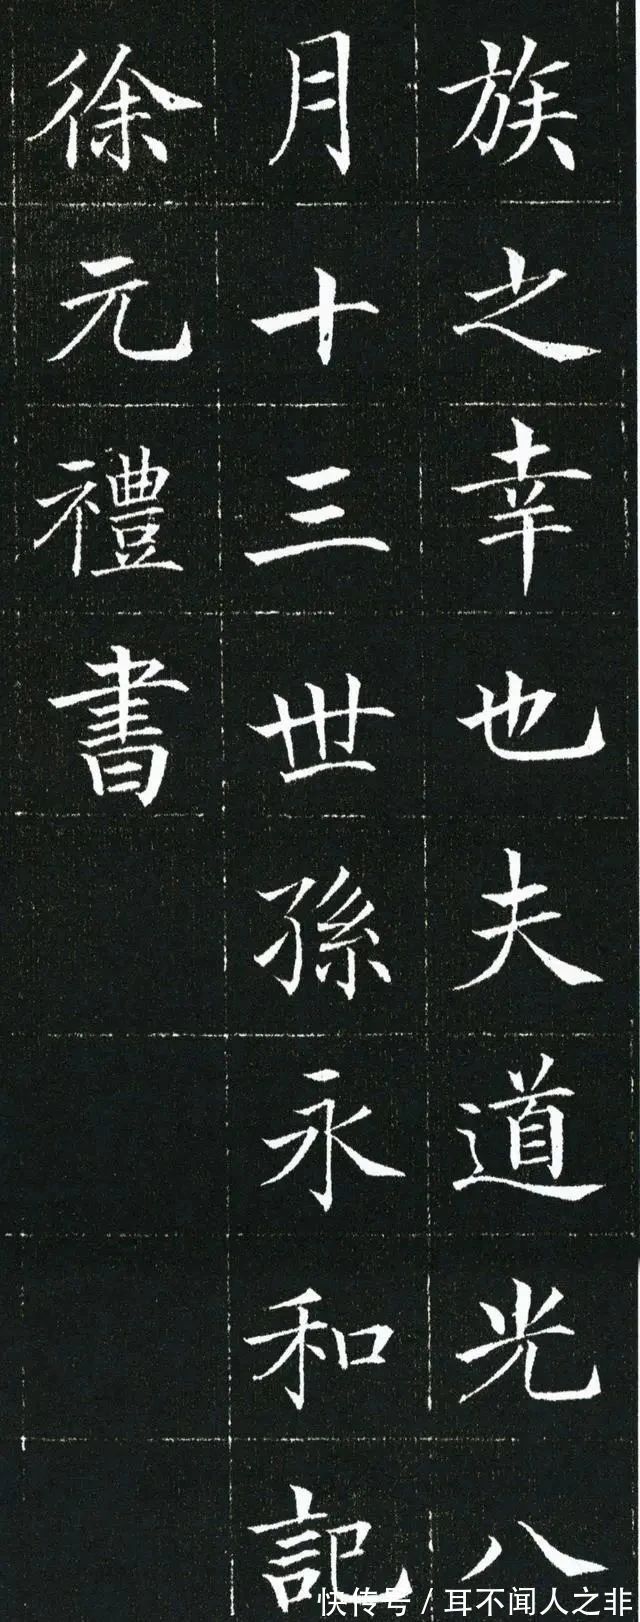 族之幸也夫道光八
月十三世孫永和記
徐元禮書
快传号/耳不闻人之非